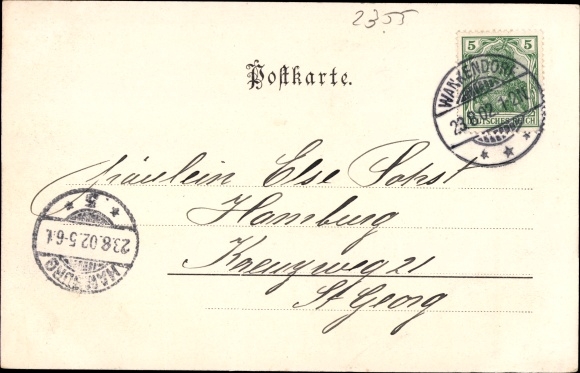 2355
Postkarte.
5 5
DEUTSCHES REICH
WANKENDORF
23.8.02. 1-2N.
Fräulein Else Sohst
Hamburg
Kreuzweg 21
St Georg
HAMBURG
23.8.02.5-6N.
* 5. *